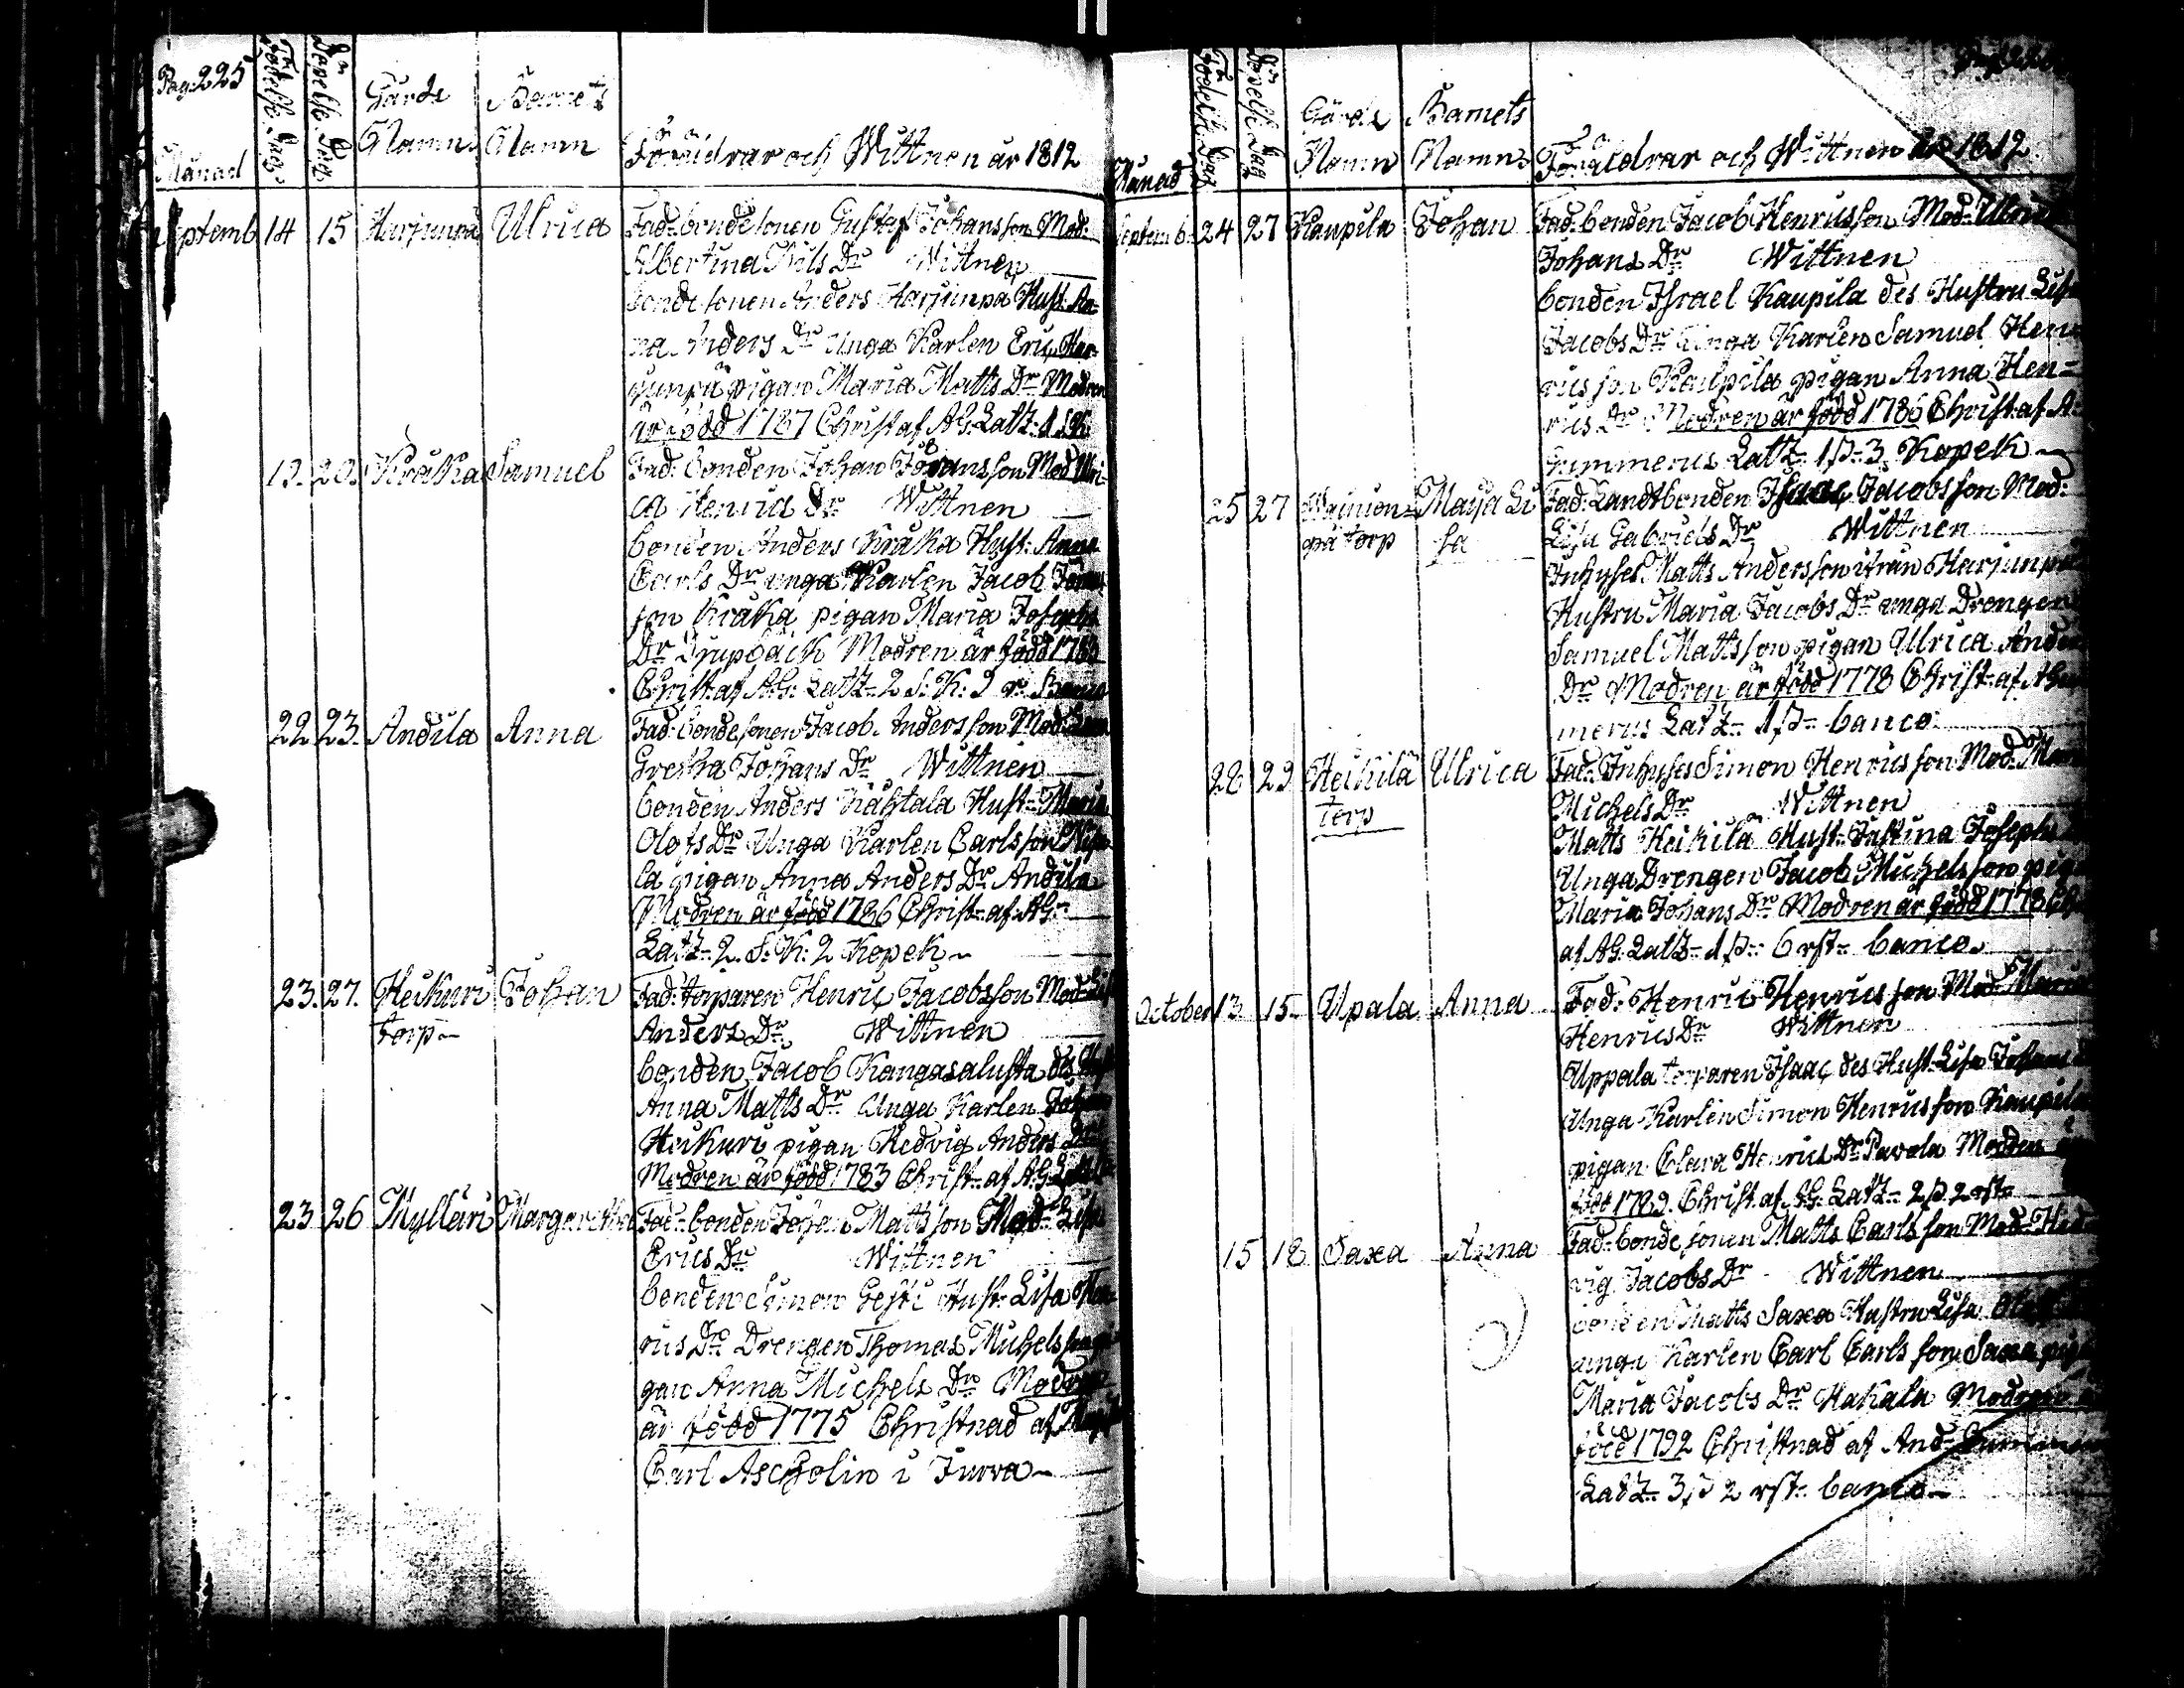 Pag: 225
Månad
Födelse Dag
Döpelse Dag
Gårds Namn
Barnets Namn
Föräldrar och Wittnen år 1812
Septemb 14 15 Harjunpä Ulrica Fad: bondesonen Gustaf Johansson Mod:
Albertina Nils Dr Wittnen
bondesonen Anders Harjunpä Hust: An-
na Anders Dr Unga Karlen Eric Har-
junpä pigan Maria Matts Dr Modren
är född 1787 Christ af AG: Latz: 1 S:K
19. 20. Kråka Samuel Fad: bonden Johan Johansson Mod Ulri-
ca Henrics Dr Wittnen
bonden Anders Kråka Hust: Anna
Carls Dr unga Karlen Jacob
son Kråka pigan Maria Josephs
Dr Djupbäck Modren är född
Christ: af AG: Latz- 2 S: K: 2 r:
22. 23. Andila Anna Fad: bondesonen Jacob Andersson Mod:
Gretha Johans Dr Wittnen
bonden Anders Kåhtala Hust: Maria
Olofs Dr Unga Karlen Carlsson
la pigan Anna Anders Dr Andila
Modren är född 1786 Christ- af AG:
Latz- 2. S: K: 2 Kopek-
23. 27. Heikuri Johan Fad: torparen Henric Jacobsson Mod: Lisa
torp- Anders Dr Wittnen
bonden Jacob Kangasalusta des
Anna Matts Dr Unga Karlen Johan
Heikuri pigan Hedvig Anders Dr
Modren är född 1783 Christ- af AG: Latz
23 26 Myllari Margaretha Fad: bonden Johan Mattsson Mod: Lisa
Erics Dr Wittnen
bonden Simon Gesti Hust: Lisa Hen-
rics Dr Drengen Thomas Michelsson pi-
gan Anna Michels Dr Modren
är född 1775 Christnad af
Carl Ascholin i Jurva-
Månad
Födelse Dag
Döpelse Dag
Gårds Namn
Barnets Namn
Föräldrar och Wittnen år 1812
Septemb. 24 27 Kaupila Johan Fad: bonden Jacob Henricsson Mod: Ulrica
Johans Dr Wittnen
bonden Israel Kaupila des Hustru Lisa
Jacobs Dr Unga Karlen Samuel Hen-
ricsson Kaupila pigan Anna Hen=
rics Dr Modren är född 1786 Christ: af A:
Gummerus Latz- 1 β- 3 Kopek-
25 27 Wainion= Maija Li Fad: Landtbonden Isaac Jacobsson Mod:
pä torp sa Lisa Gabriels Dr Wittnen
Inhyses Matts Andersson ifrån Harjunpä
Hustru Maria Jacobs Dr unga Drengen
Samuel Mattsson pigan Ulrica Anders
Dr Modren är född 1778 Christ- af AGum-
merus Latz- 1 β- banco
28 29 Heikilä Ulrica Fad: Inhyses Simon Henricsson Mod: Maria
torp Michels Dr Wittnen
Matts Heikilä Hust: Justina Josephs
Unga Drengen Jacob Michelsson pigan
Maria Johans Dr Modren är född 1778 Ch
af AG: Latz- 1 β- 6 rst- banco.
October 13 15- Upala Anna Fad: Henric Henricsson Mod: Maria
Henrics Dr Wittnen
Uppala torparen Isaac des Hust: Lisa Johans
Unga Karlen Simon Henricsson Kaupila
pigan Clara Henrics Dr Pavola Modren är
född 1789. Christ. af AG: Latz- 2 β 2 rst-
15 18 Saxa Anna Fad: bondesonen Matts Carlsson Mod: Hed-
vig Jacobs Dr Wittnen
bonden Matts Saxa Hustru Lisa
unga Karlen Carl Carlsson Saxa pigan
Maria Jacobs Dr Hakala Modren
född 1792 Christnad af And: Gummerus
Latz- 3 β 2 rst- banco-